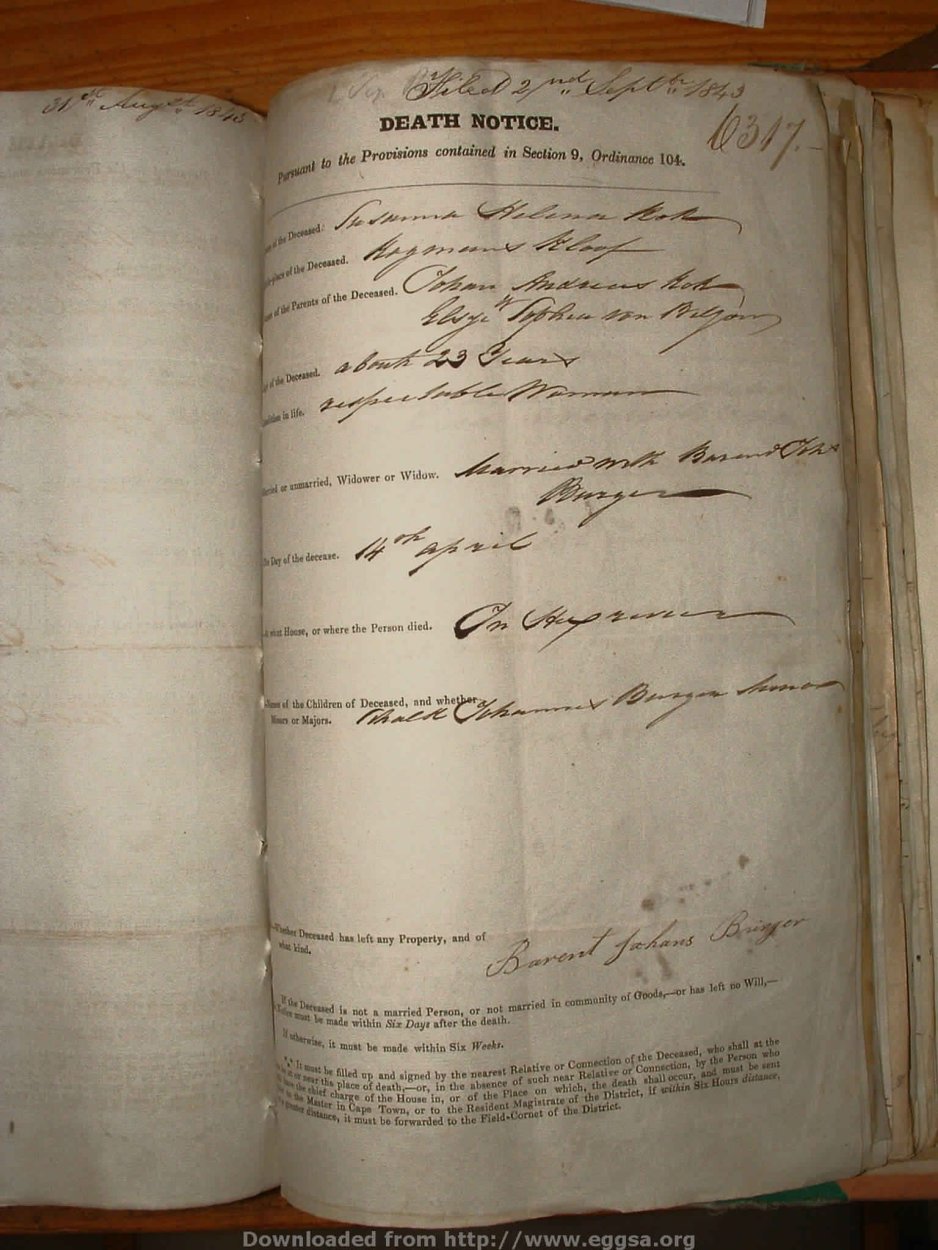 31st Augst 1843
Filed 2nd Septbr 1843
6317.
DEATH NOTICE.
Pursuant to the Provisions contained in Section 9, Ordinance 104.
of the Deceased. Susanna Helena Kok
place of the Deceased. Kogmans Kloof
of the Parents of the Deceased. Johan Andreas Kok
Elsye Sophia van
of the Deceased. about 23 Years
in life. respectable Woman
or unmarried, Widower or Widow. Married with Barend Johs
Burger
Day of the decease. 14th april
what House, or where the Person died. On Hexrivier
Names of the Children of Deceased, and whether
Minors or Majors. Johannes Burger Minor
Whether Deceased has left any Property, and of
what kind.
Barent Johans Burger
If the Deceased is not a married Person, or not married in community of Goods,—or has left no Will,—
Notice must be made within Six Days after the death.
If otherwise, it must be made within Six Weeks.
*** It must be filled up and signed by the nearest Relative or Connection of the Deceased, who shall at the
at or near the place of death,—or, in the absence of such near Relative or Connection, by the Person who
have the chief charge of the House in, or of the Place on which, the death shall occur, and must be sent
to the Master in Cape Town, or to the Resident Magistrate of the District, if within Six Hours distance,
greater distance, it must be forwarded to the Field-Cornet of the District.
Downloaded from http://www.eggsa.org